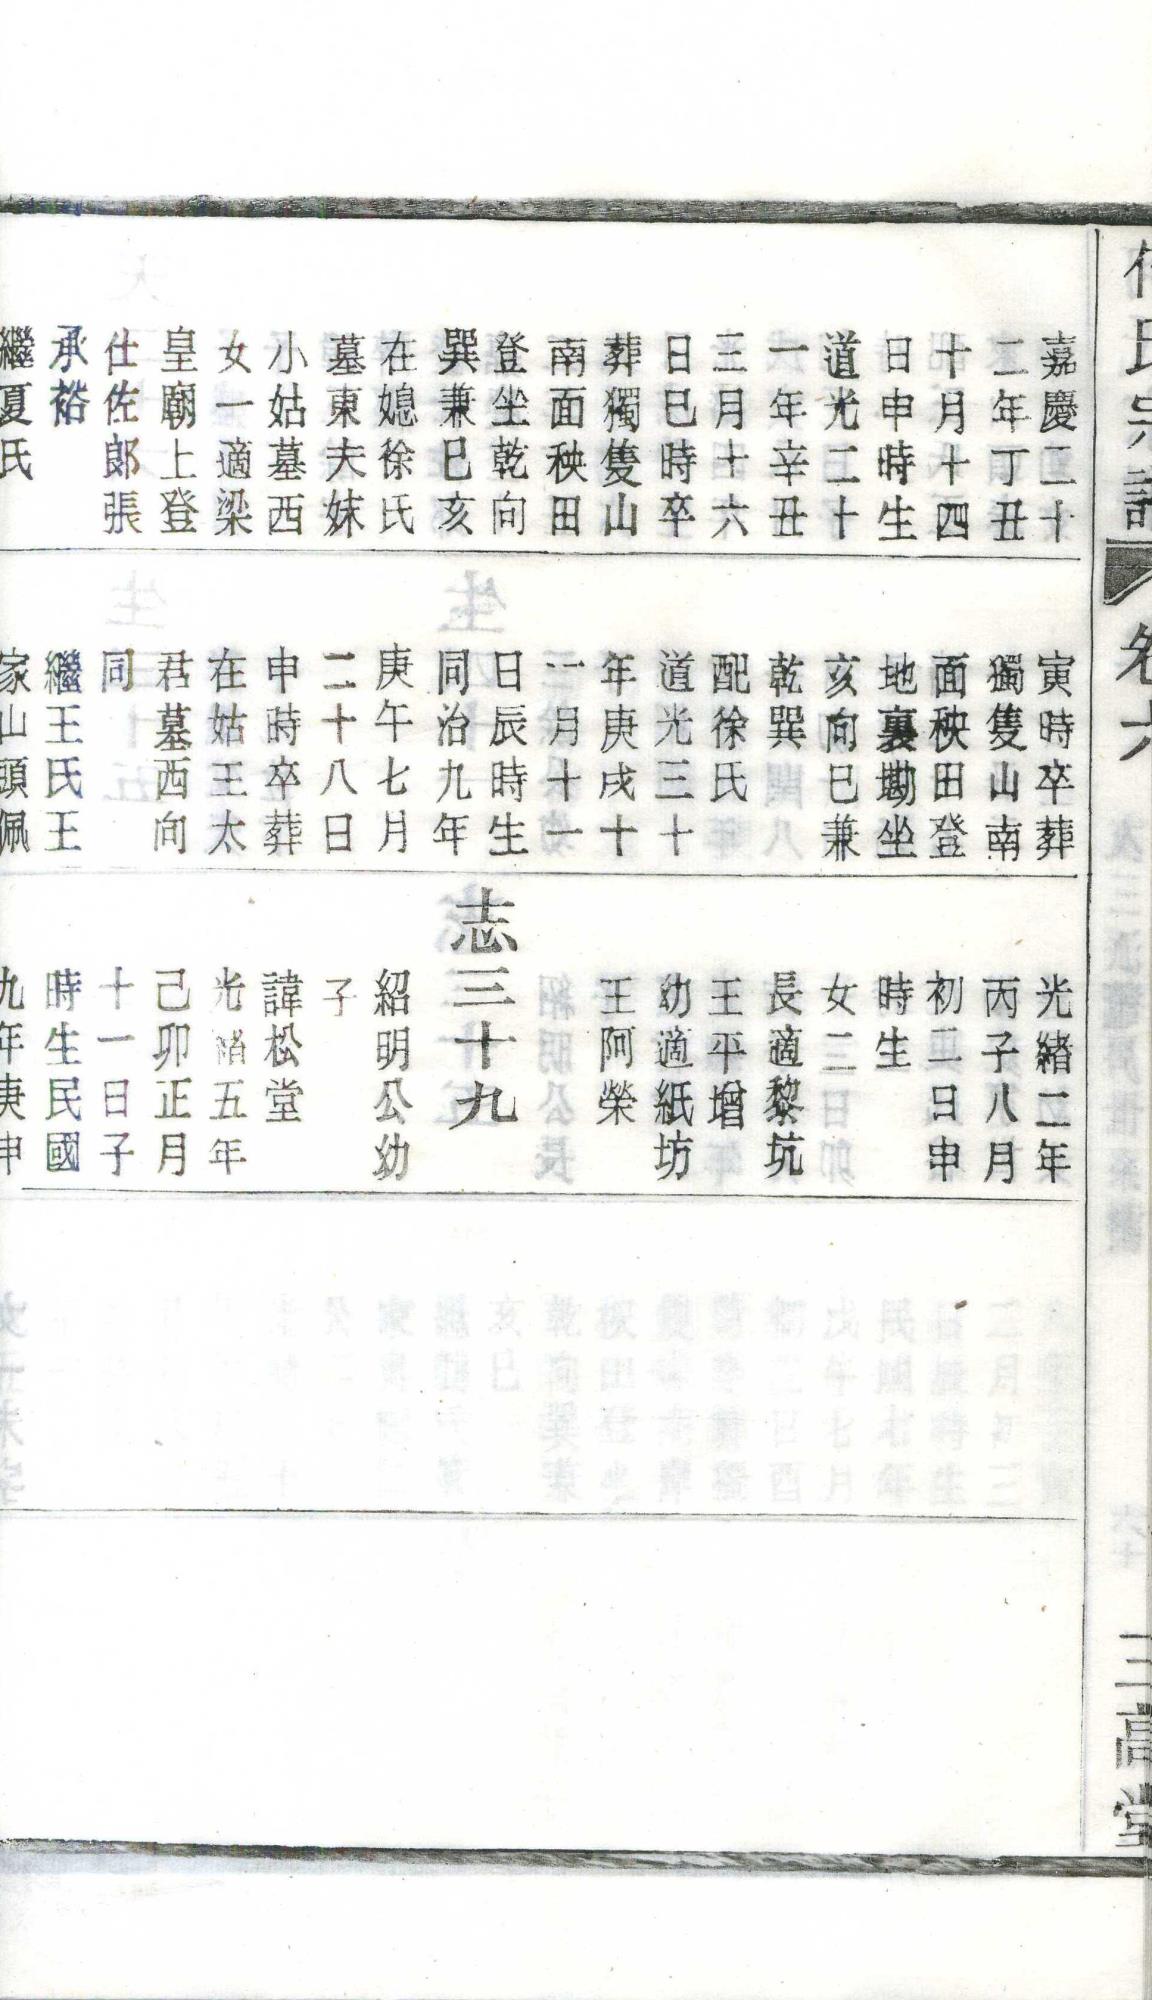 氏宗譜
卷六
三高堂
嘉慶二十
二年丁丑
十月十四
日申時生
道光二十
一年辛丑
三月十六
日巳時卒
葬獨隻山
南面秧田
登坐乾向
巽兼巳亥
在媳徐氏
墓東夫妹
小姑墓西
女一適梁
皇廟上登
仕佐郎張
承裕
繼夏氏
寅時卒葬
獨隻山南
面秧田登
地裏墈坐
亥向巳兼
乾巽
配徐氏
道光三十
年庚戌十
一月十一
日辰時生
同治九年
庚午七月
二十八日
申時卒葬
在姑王太
君墓西向
同
繼王氏王
家山頭佩
光緒二年
丙子八月
初二日申
時生
女二
長適黎坑
王平增
幼適紙坊
王阿榮
志三十九
紹明公幼
子
諱松堂
光緒五年
己卯正月
十一日子
時生民國
九年庚申